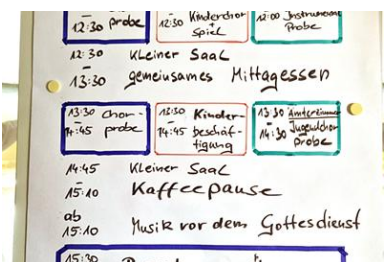 12:30 Probe
12:30 Kinderchor + Spiel
12:00 Probe
12:30 Kleiner Saal
13:30 gemeinsames Mittagessen
13:30 Chor-
14:45 probe
13:30 Kinder-
14:45 beschäf-
tigung
13:30
14:30 Jugendchor
Probe
14:45 Kleiner Saal
15:10 Kaffeepause
ab
15:10 Musik vor dem Gottesdienst
15:30